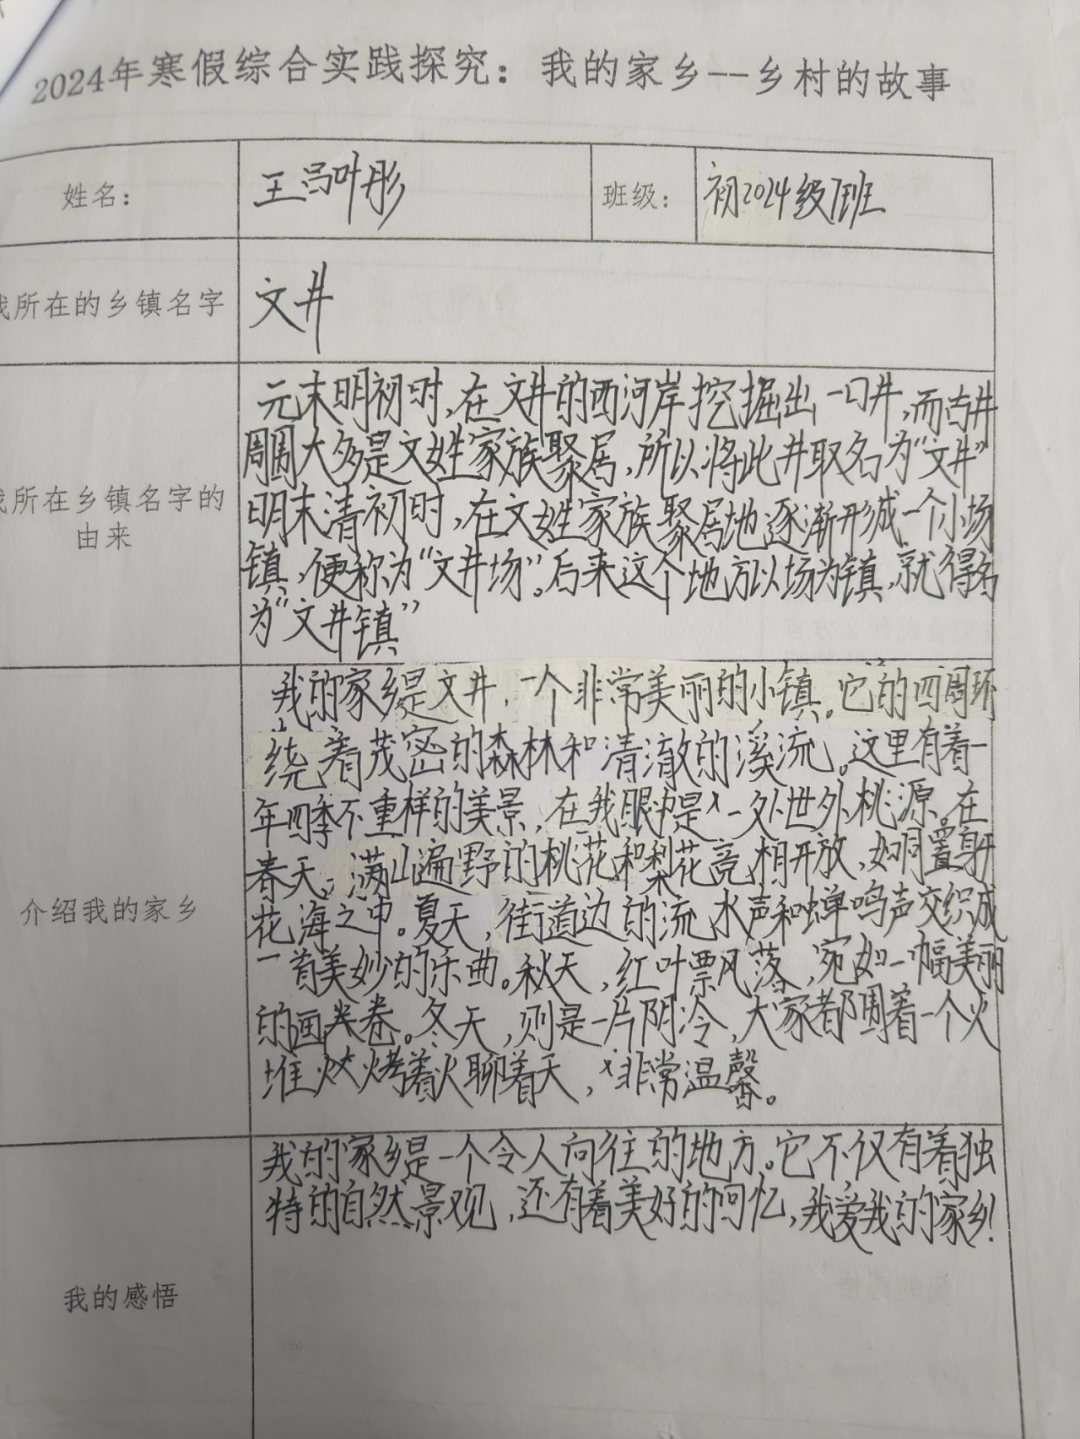 2024年寒假综合实践探究：我的家乡--乡村的故事
姓名：
王冯叶彤
班级：
初2024级7班
我所在的乡镇名字
文井
我所在乡镇名字的
由来
元末明初时,在文井的西河岸挖掘出一口井,而古井
周围大多是文姓家族聚居,所以将此井取名为“文井”
明末清初时,在文姓家族聚居地逐渐形成一个小场
镇,便称为“文井场”。后来这个地方以场为镇,就得名
为“文井镇”
介绍我的家乡
我的家乡是文井,一个非常美丽的小镇。它的四周环
绕着茂密的森林和清澈的溪流。这里有着一
年四季不重样的美景,在我眼中是一处世外桃源。在
春天,满山遍野的桃花和梨花竞相开放,如同置身于
花海之中。夏天,街道边的流水声和蝉鸣声交织成
一首美妙的乐曲。秋天,红叶飘风落,宛如一幅美丽
的画卷。冬天,则是一片阴冷,大家都围着一个火
堆烤着火聊着天,非常温馨。
我的感悟
我的家乡是一个令人向往的地方。它不仅有着独
特的自然景观,还有着美好的回忆,我爱我的家乡!